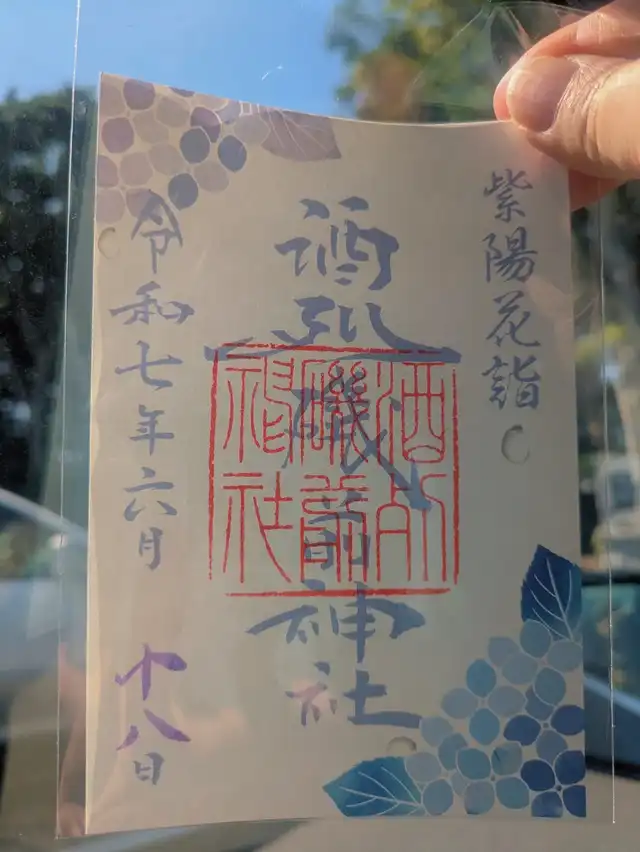 紫陽花詣
酒列磯前神社
酒列
磯前
神社
令和七年六月十八日